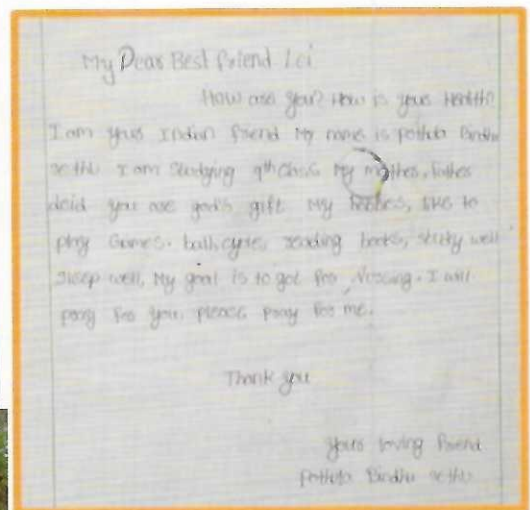 My Dear Best friend Lei
How are you? How is your Health?
I am your Indian friend My name is Pothula Bindhu
sethu I am studying 9th class. My mother, father
deid you are god's gift My hobbies, like to
play Games. ball, cycle, reading books, study well
sleep well, My goal is to got for Nursing. I will
pray for you, please pray for me.
Thank you
yours loving friend
Pothula Bindhu sethu